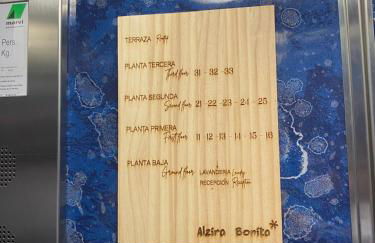 marvi
Pers.
Kg.
TERRAZA Rooftop
PLANTA TERCERA
Third floor 31 - 32 - 33
PLANTA SEGUNDA
Second floor 21 - 22 - 23 - 24 - 25
PLANTA PRIMERA
First floor 11 - 12 - 13 - 14 - 15 - 16
PLANTA BAJA
Ground floor LAVANDERIA Laundry
RECEPCIÓN Reception
Alzira Bonita*